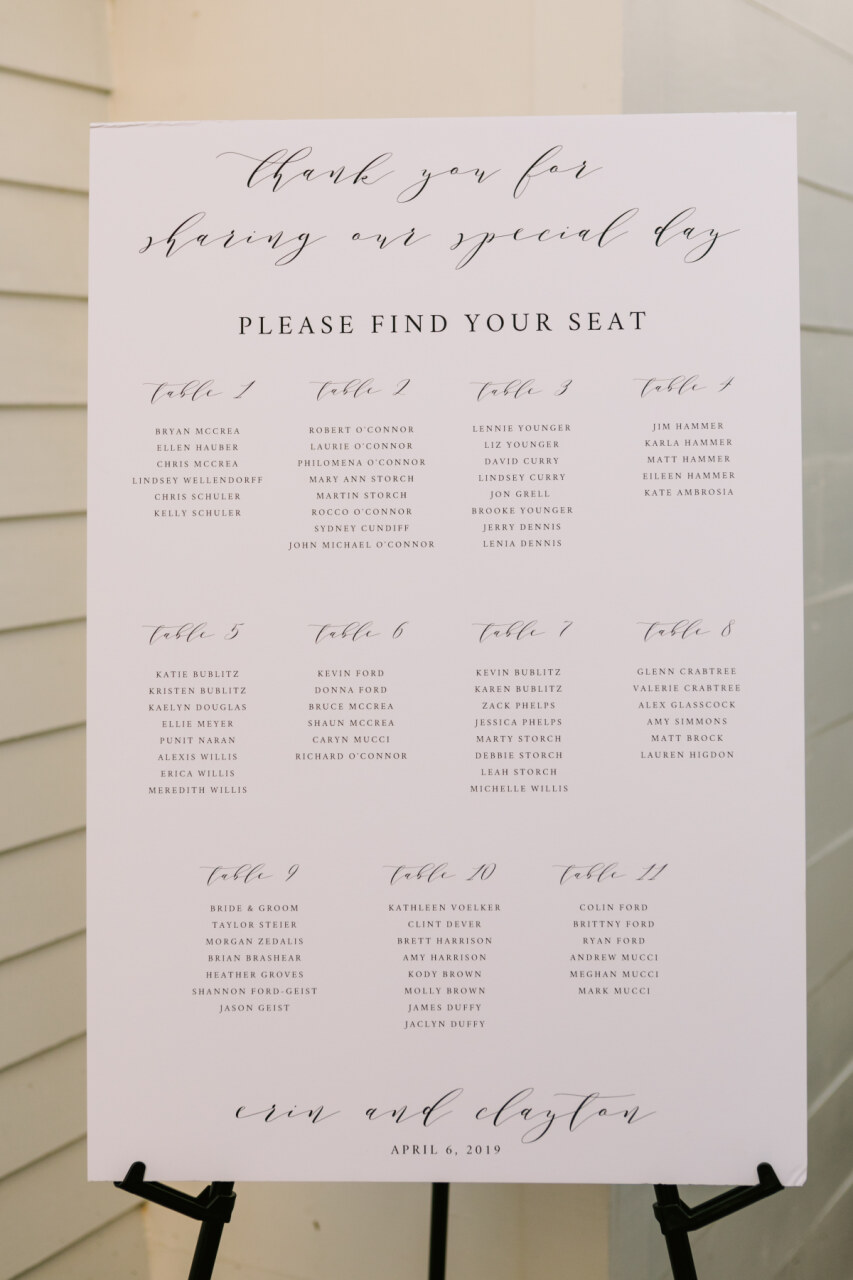 thank you for
sharing our special day
PLEASE FIND YOUR SEAT
table 1
BRYAN MCCREA
ELLEN HAUBER
CHRIS MCCREA
LINDSEY WELLENDORFF
CHRIS SCHULER
KELLY SCHULER
table 2
ROBERT O'CONNOR
LAURIE O'CONNOR
PHILOMENA O'CONNOR
MARY ANN STORCH
MARTIN STORCH
ROCCO O'CONNOR
SYDNEY CUNDIFF
JOHN MICHAEL O'CONNOR
table 3
LENNIE YOUNGER
LIZ YOUNGER
DAVID CURRY
LINDSEY CURRY
JON GRELL
BROOKE YOUNGER
JERRY DENNIS
LENIA DENNIS
table 4
JIM HAMMER
KARLA HAMMER
MATT HAMMER
EILEEN HAMMER
KATE AMBROSIA
table 5
KATIE BUBLITZ
KRISTEN BUBLITZ
KAELYN DOUGLAS
ELLIE MEYER
PUNIT NARAN
ALEXIS WILLIS
ERICA WILLIS
MEREDITH WILLIS
table 6
KEVIN FORD
DONNA FORD
BRUCE MCCREA
SHAUN MCCREA
CARYN MUCCI
RICHARD O'CONNOR
table 7
KEVIN BUBLITZ
KAREN BUBLITZ
ZACK PHELPS
JESSICA PHELPS
MARTY STORCH
DEBBIE STORCH
LEAH STORCH
MICHELLE WILLIS
table 8
GLENN CRABTREE
VALERIE CRABTREE
ALEX GLASSCOCK
AMY SIMMONS
MATT BROCK
LAUREN HIGDON
table 9
BRIDE & GROOM
TAYLOR STEIER
MORGAN ZEDALIS
BRIAN BRASHEAR
HEATHER GROVES
SHANNON FORD-GEIST
JASON GEIST
table 10
KATHLEEN VOELKER
CLINT DEVER
BRETT HARRISON
AMY HARRISON
KODY BROWN
MOLLY BROWN
JAMES DUFFY
JACLYN DUFFY
table 11
COLIN FORD
BRITTNY FORD
RYAN FORD
ANDREW MUCCI
MEGHAN MUCCI
MARK MUCCI
erin and clayton
APRIL 6, 2019